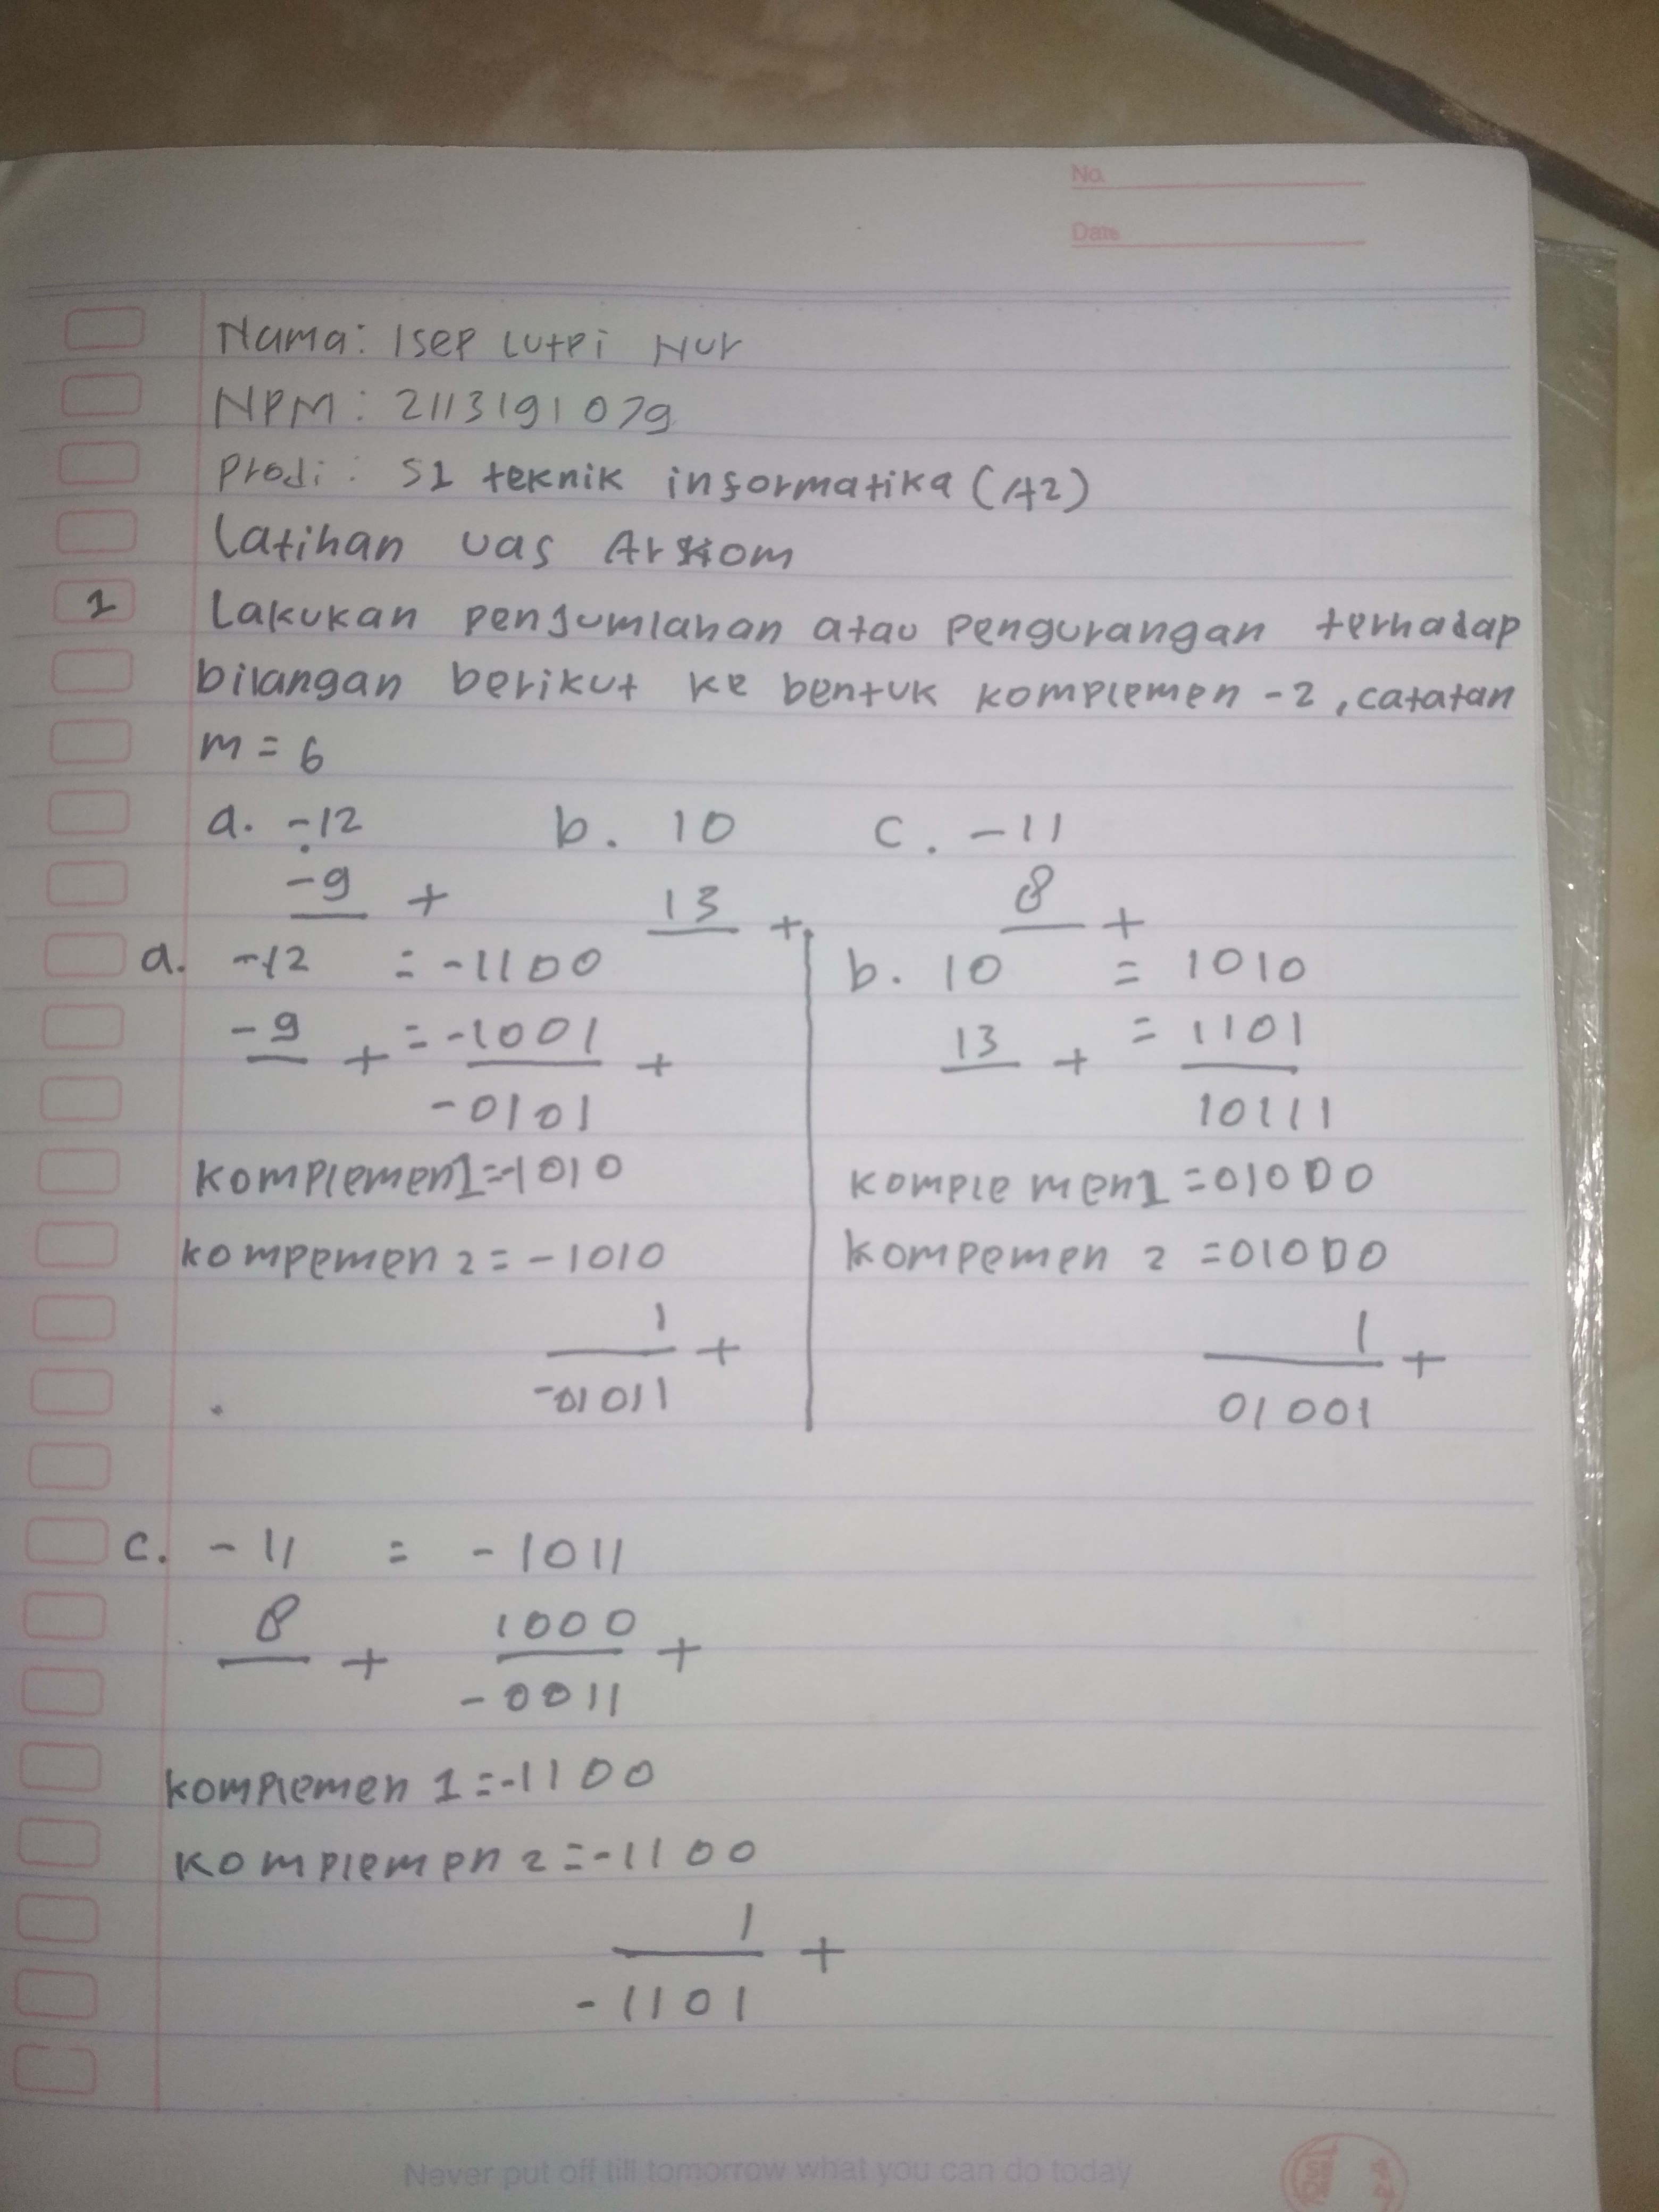 No.
Date
Nama: Isep Lutpi Nur
NPM: 2113191079
Prodi: S1 teknik informatika (A2)
Latihan uas Arkom
1 Lakukan penjumlahan atau pengurangan terhadap
bilangan berikut ke bentuk komplemen -2, catatan
m = 6
a. -12 b. 10 c. -11
-9 + 13 + 8 +
a. -12 = -1100
-9 + = -1001 +
-0101
komplemen1=-1010
kompemen 2 = -1010
1 +
-01011
b. 10 = 1010
13 + = 1101
10111
komplemen1 =01000
kompemen 2 =01000
1 +
01001
c. -11 = -1011
8 + 1000 +
-0011
komplemen 1 =-1100
komplemen 2 =-1100
1 +
-1101
Never put off till tomorrow what you can do today